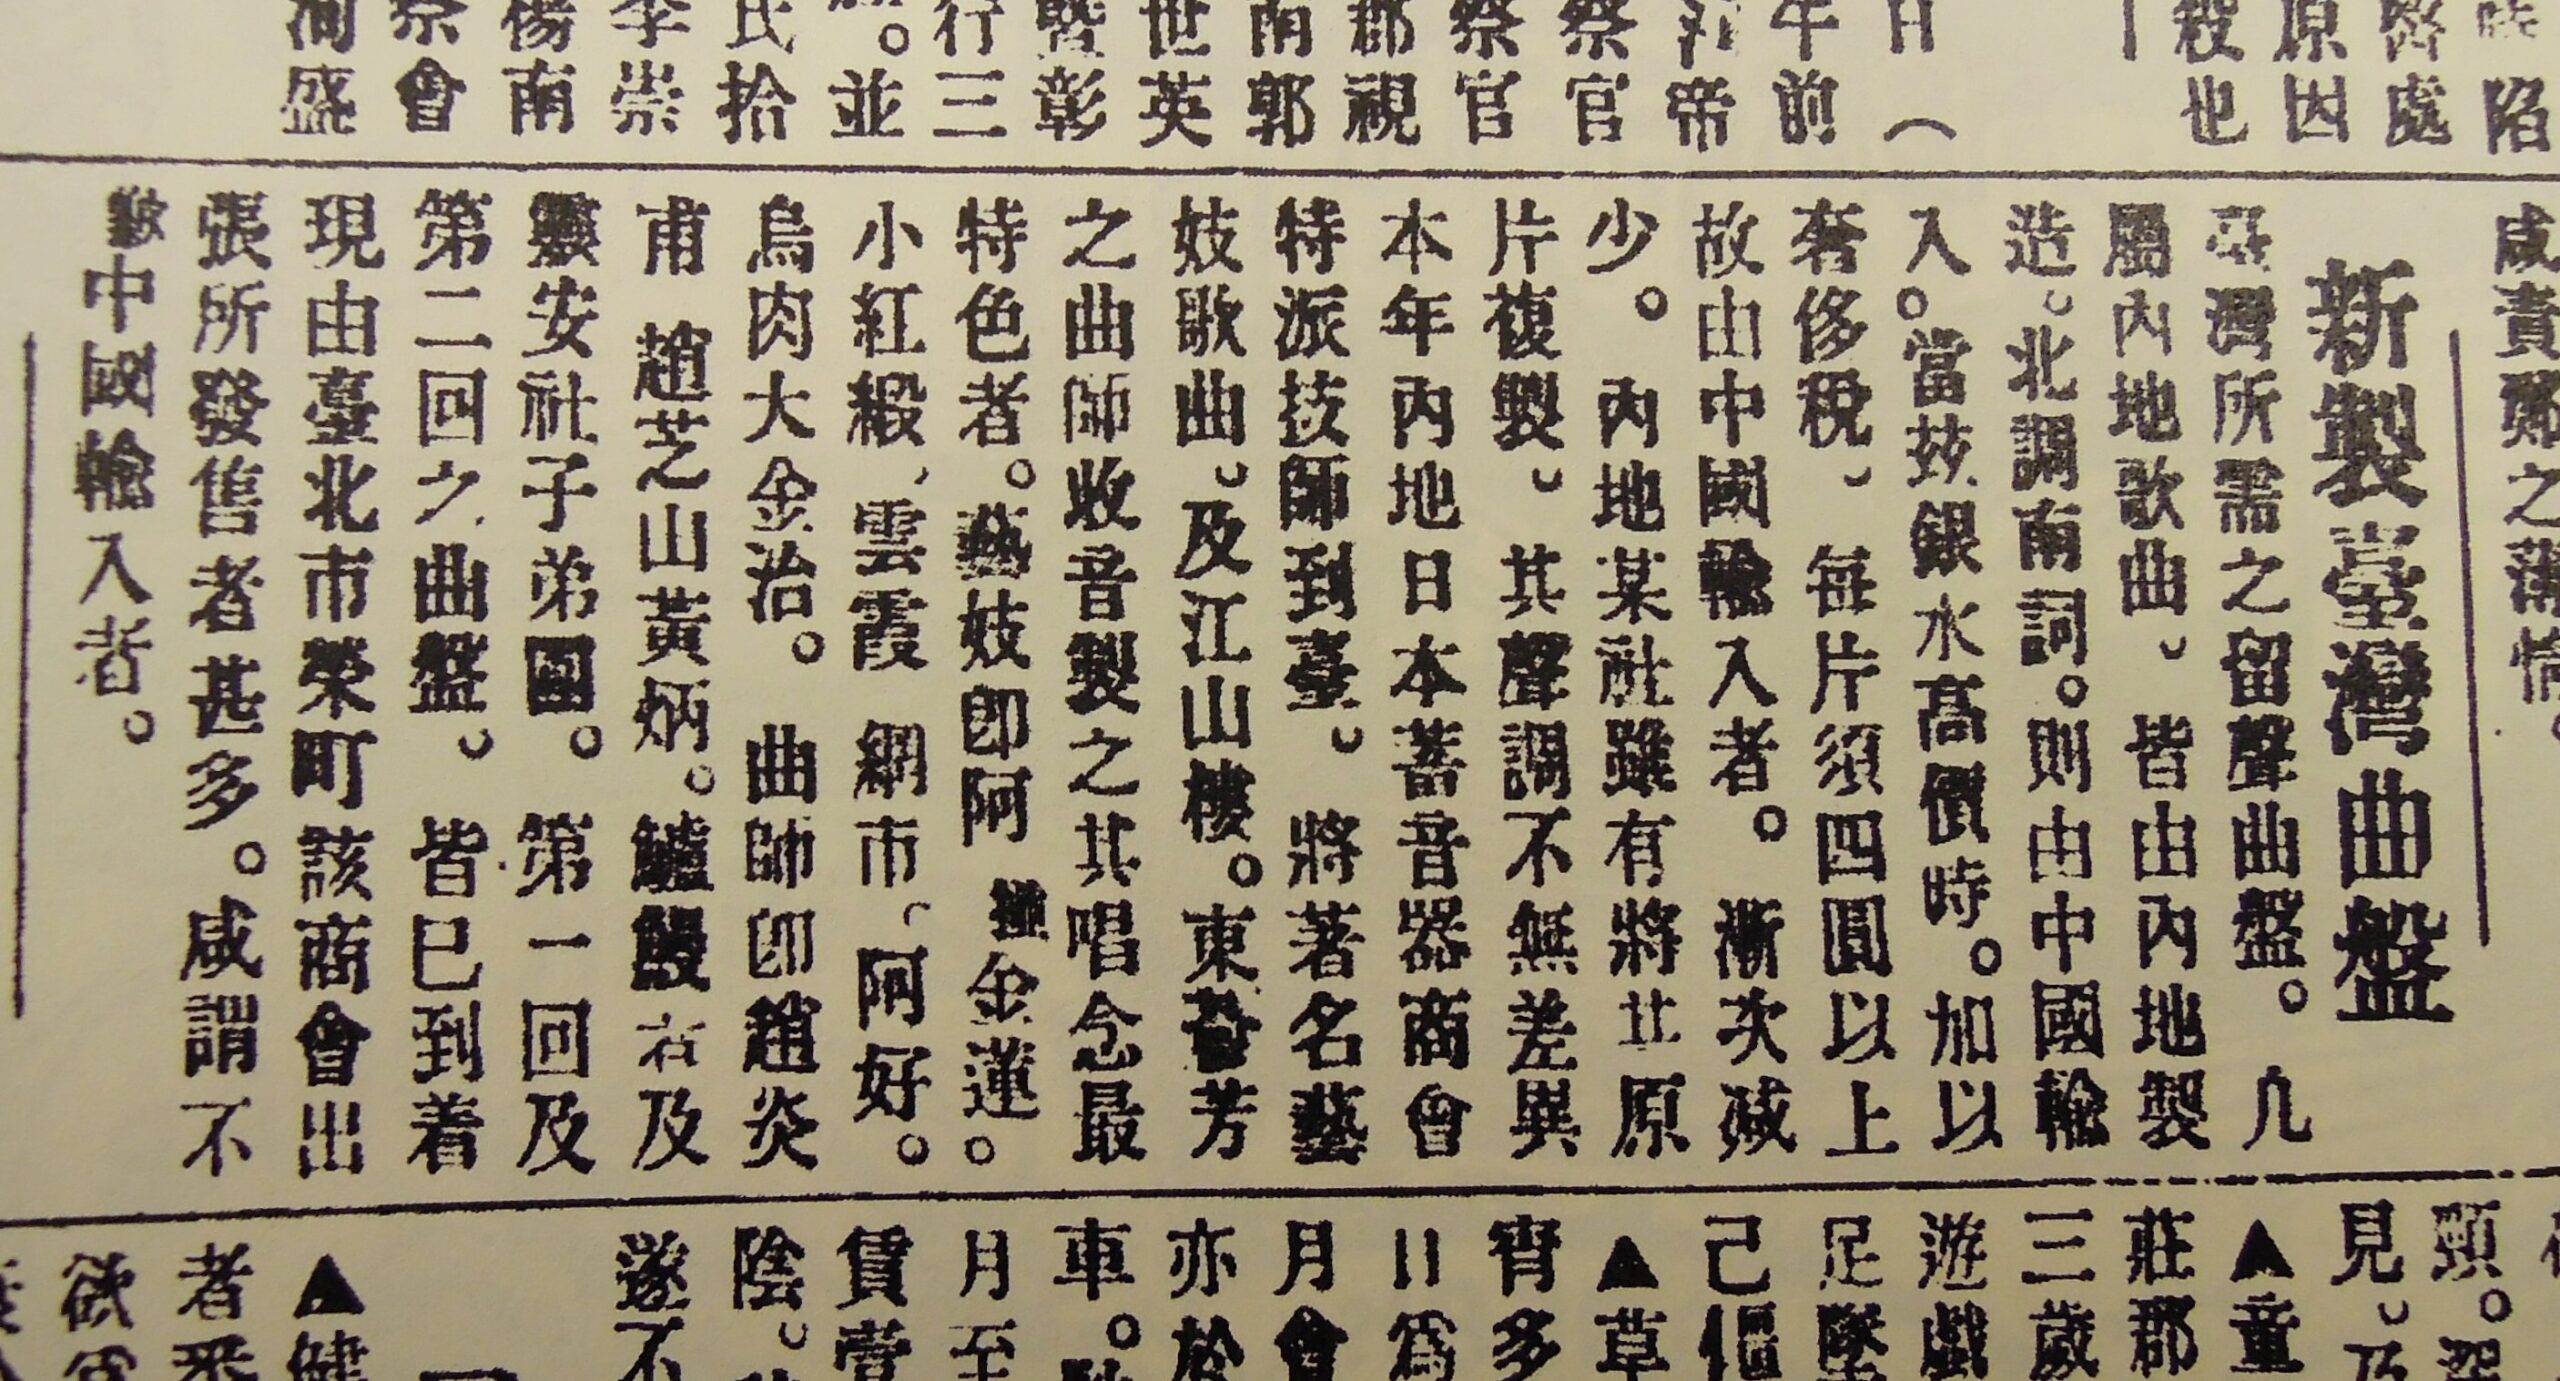 陷
處
原因
殺也
日（
午前
帝
察官
察官
郡視
南郭
世英
彰
行三
。並
民拾
李崇
楊南
察會
洞盛
咸責鄭之薄情。
新製臺灣曲盤
臺灣所需之留聲曲盤。凡
屬內地歌曲。皆由內地製
造。北調南詞。則由中國輸
入。當茲銀水高價時。加以
奢侈稅。每片須四圓以上
故由中國輸入者。漸次減
少。內地某社雖有將北原
片複製。其聲調不無差異
本年內地日本蓄音器商會
特派技師到臺。將著名藝
妓歌曲。及江山樓。東薈芳
之曲師收音製之其唱念最
特色者。藝妓即阿 金蓮。
小紅緞、雲霞 網市、阿好。
烏肉大金治。曲師即趙炎
甫 趙芝山黃炳。鱸鰻 及
靈安社子弟團。第一回及
第二回之曲盤。皆已到着
現由臺北市榮町該商會出
張所發售者甚多。咸謂不
歉中國輸入者。
頸。
見。乃
▲童
莊郡
三歲
遊戲
足墜
己傴
▲草
宵多
日為
月會
亦於
車。
月至
賃壹
陰。
遂不
▲健
者
欲